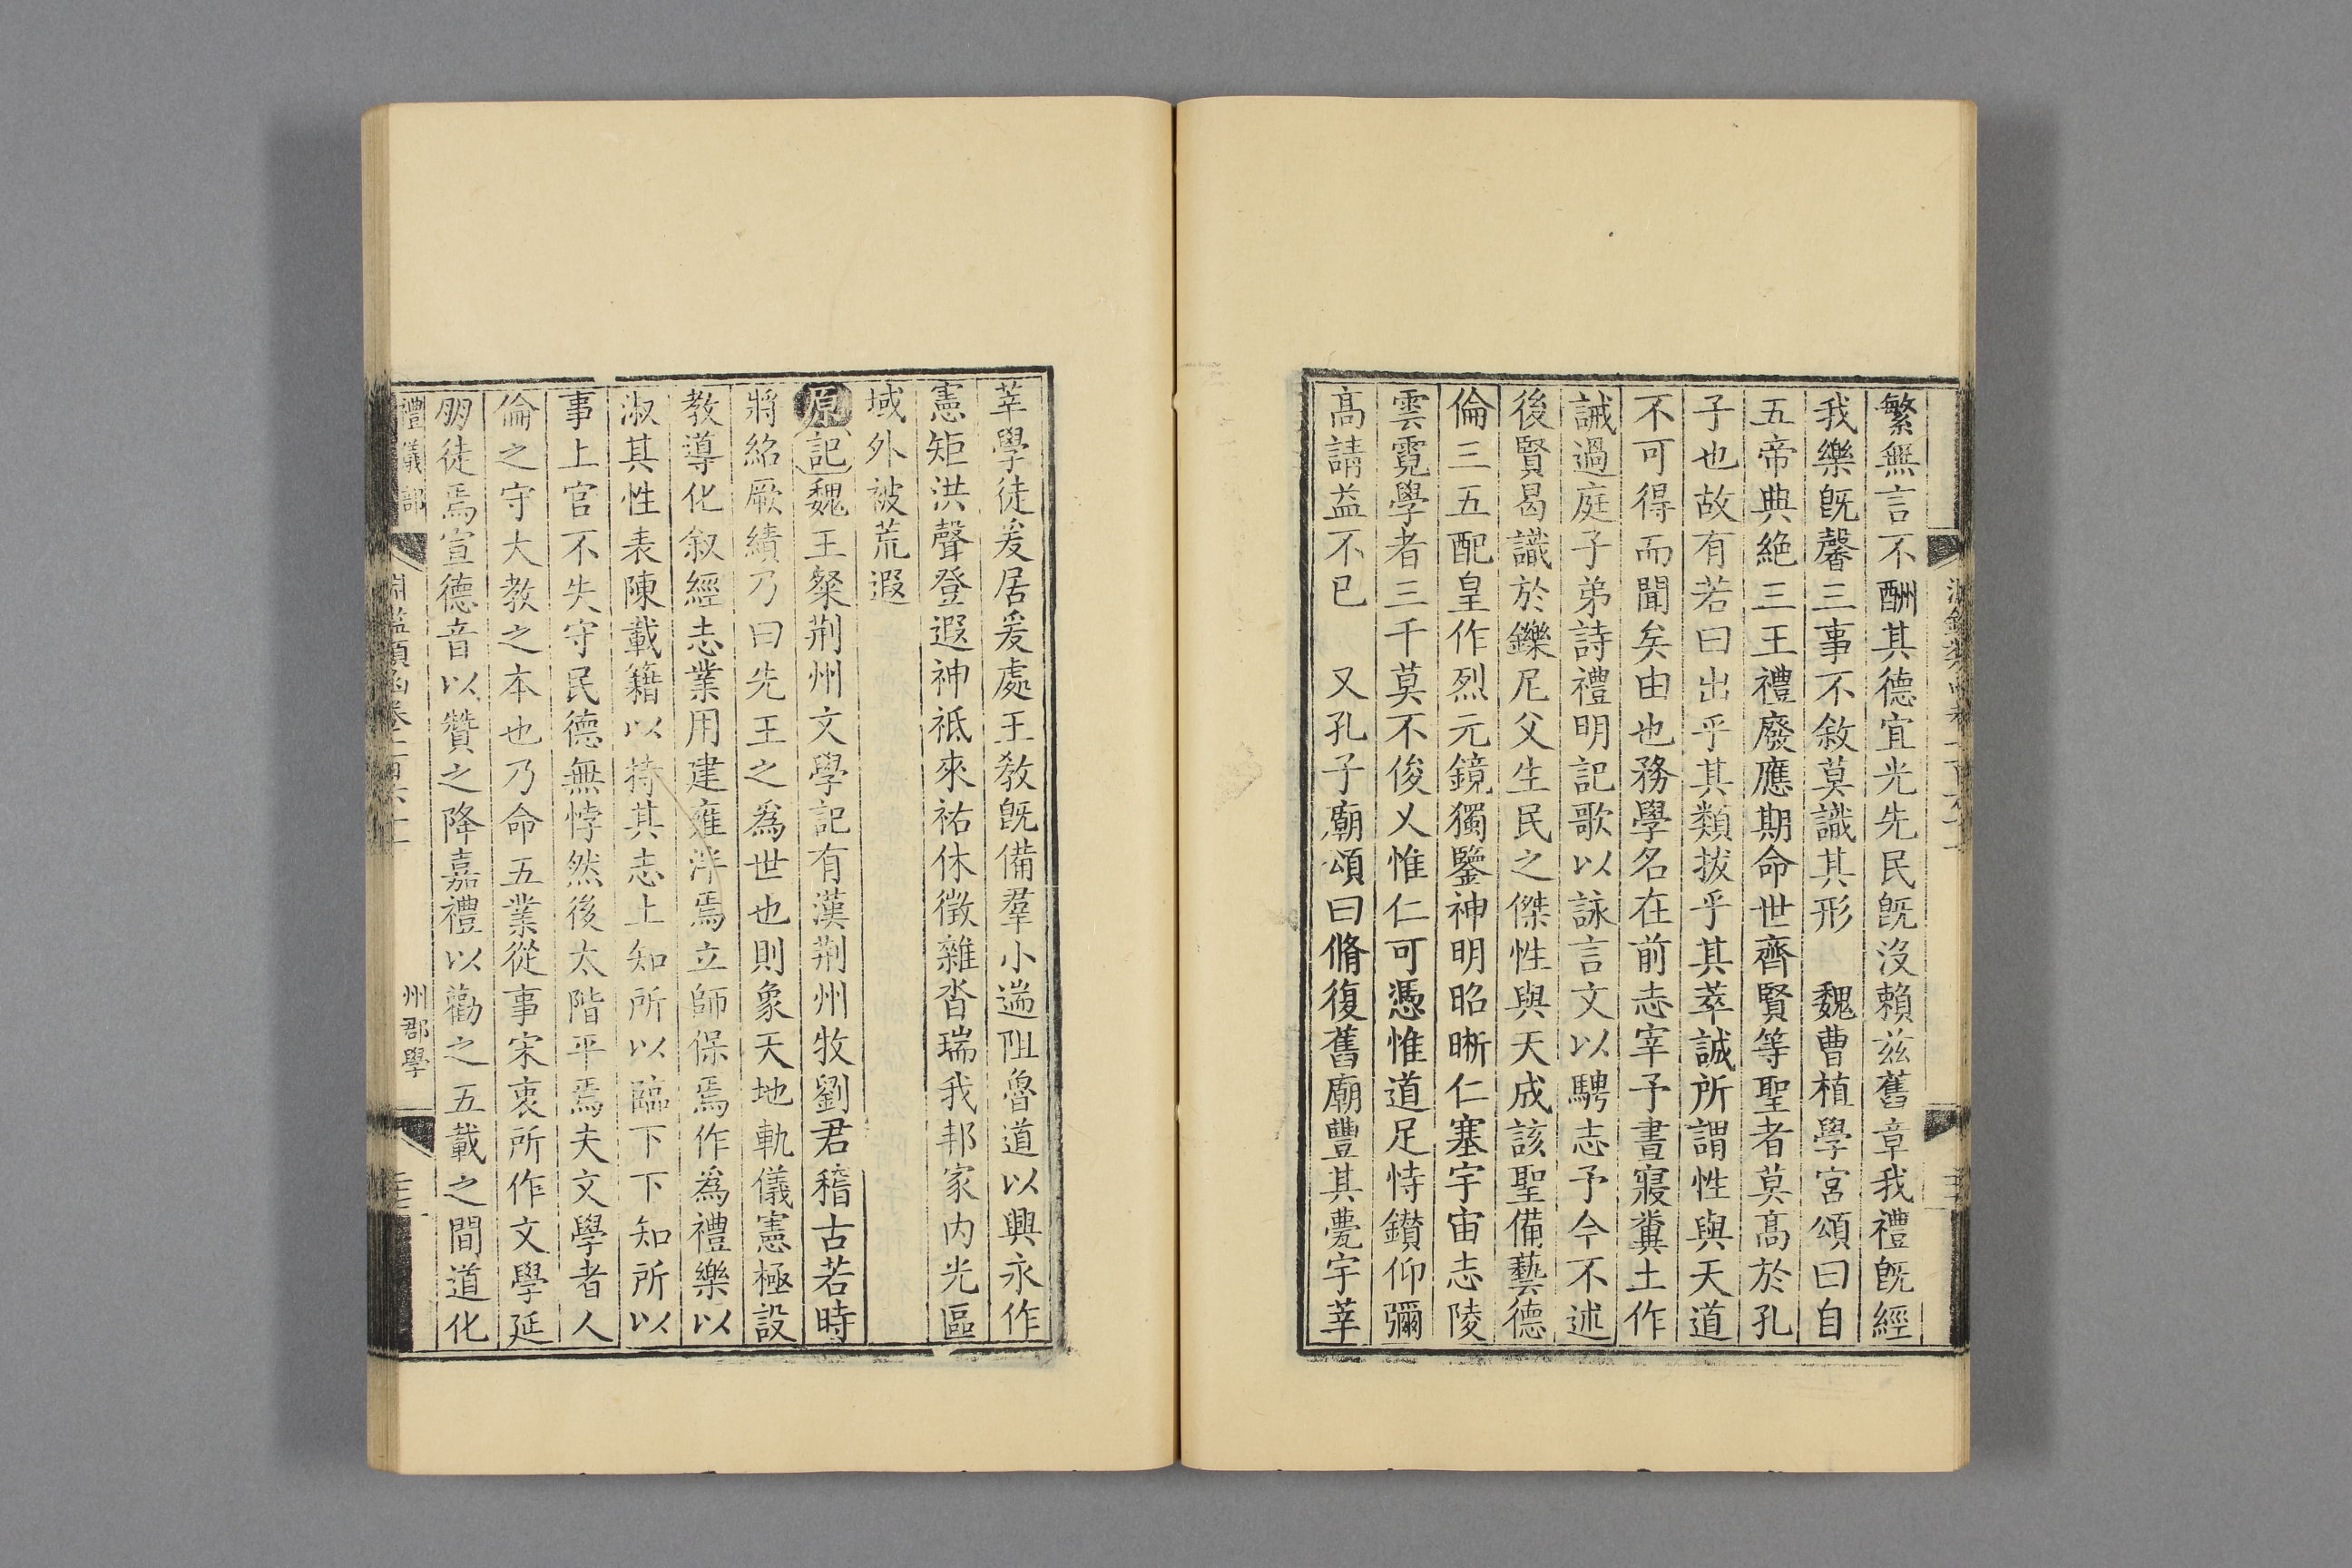 繁無言不酬其德宜光先民旣沒賴茲舊章我禮旣經
我樂旣馨三事不敘莫識其形　魏曹植學宮頌曰自
五帝典絶三王禮廢應期命世齊賢等聖者莫髙於孔
子也故有若曰出乎其類拔乎其萃誠所謂性與天道
不可得而聞矣由也務學名在前志宰予晝寢糞土作
誡過庭子弟詩禮明記歌以詠言文以騁志予今不述
後賢曷識於鑠尼父生民之傑性與天成該聖備藝德
倫三五配皇作烈元鏡獨鑒神明昭晰仁塞宇宙志陵
雲霓學者三千莫不俊乂惟仁可憑惟道足恃鑚仰彌
髙請益不已　又孔子廟頌曰脩復舊廟豐其甍宇莘
莘學徒爰居爰處王教旣備羣小遄阻魯道以興永作
憲矩洪聲登遐神祗來祐休徵雜沓瑞我邦家内光區
域外被荒遐
原記魏王粲荆州文學記有漢荆州牧劉君稽古若時
將紹厥績乃曰先王之爲世也則象天地軌儀憲極設
教導化叙經志業用建雍泮焉立師保焉作爲禮樂以
淑其性表陳載籍以持其志上知所以臨下下知所以
事上官不失守民德無悖然後太階平焉夫文學者人
倫之守大教之本也乃命五業從事宋衷所作文學延
朋徒焉宣德音以贊之降嘉禮以勸之五載之間道化
禮儀部
州郡學